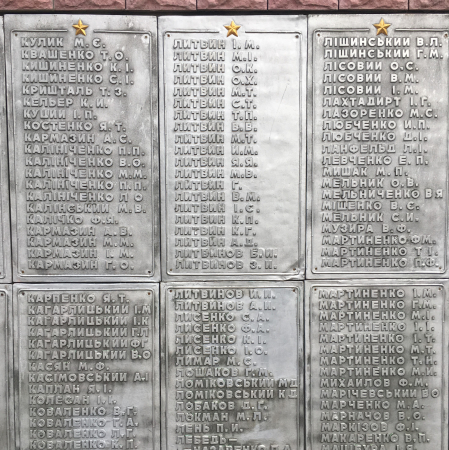 КУЛИК М.Є.
КВАШЕНКО Т.О.
КИШИНЕНКО К.І.
КИШИНЕНКО С.І.
КРИШТАЛЬ Т.З.
КЕЛЬЕР К.И.
КУЦИЙ І.П.
КОСТЕНКО Я.Т.
КАРМАЗИН А.С.
КАЛІНІЧЕНКО В.П.
КАЛІНІЧЕНКО В.О.
КАЛІНІЧЕНКО М.М.
КАЛІНІЧЕНКО П.П.
КАЛІНІЧЕНКО Л.О
КАЛІНСЬКИЙ М.В.
КАЛІЧКО Ф.
КАРМАЗИН А.В.
КАРМАЗИН М.М.
КАРМАЗИН І.М.
КАРМАЗИН Г.О.
ЛИТВИН І.М.
ЛИТВИН М.І.
ЛИТВИН О.К.
ЛИТВИН О.Х.
ЛИТВИН М.Т.
ЛИТВИН С.Т.
ЛИТВИН Т.П.
ЛИТВИН В.В.
ЛИТВИН М.Т.
ЛИТВИН И.М.
ЛИТВИН Я.Я.
ЛИТВИН М.В.
ЛИТВИН Г.
ЛИТВИН В.М.
ЛИТВИН І.Є.
ЛИТВИН К.П.
ЛИТВИН К.Г.
ЛИТВИН А.Д.
ЛИТВИНОВ В.И.
ЛИТВИНОВ З.И.
ЛІЩИНСЬКИЙ В.Л.
ЛІЩИНСЬКИЙ Г.М.
ЛІСОВИЙ О.С.
ЛІСОВИЙ В.М.
ЛІСОВИЙ І.М.
ЛАХТАДИРТ І.Г.
ЛАЗОРЕНКО М.С.
ЛЮБЧЕНКО И.П.
ЛЮБЧЕНКО Д.І.
ЛАНФЕЛЬД Л.І.
ЛЕВЧЕНКО Е.П.
МИШАК М.П.
МЕЛЬНИК О.В.
МЕЛЬНИЧЕНКО В.Я
МІЩЕНКО В.Є.
МЕЛЬНИК С.И.
МУЗИРА В.Ф.
МАРТИНЕНКО Ф.М.
МАРТИНЕНКО Т.І.
МАРТИНЕНКО П.Ф.
КАРПЕНКО Я.Т.
КАГАРЛИЦЬКИЙ І.М
КАГАРЛИЦЬКИЙ І.К
КАГАРЛИЦЬКИЙ
КАГАРЛИЦЬКИЙ Ф.Г
КАГАРЛИЦЬКИЙ В.О
КАСЯН М.Ф.
КАСІМОВСЬКИЙ А.І
КАПЛАН Я.І.
КОЛЕСАН І.І.
КОВАЛЕНКО В.Г.
КОВАЛЕНКО Г.А.
КОВАЛЕНКО Л.Г.
КОВАЛЕНКО К.П.
ЛИТВИНОВ И.И.
ЛИТВИНОВ А.И.
ЛИСЕНКО С.А.
ЛИСЕНКО Ф.А.
ЛИСЕНКО К.І.
ЛИСЕНКО І.О.
ЛИМАР М.С.
ЛОШАКОВ Г.М.
ЛОМІКОВСЬКИЙ М.Д
ЛОМІКОВСЬКИЙ К.Д
ЛОБАКОВ Д.Г.
ЛУКМАН М.Л.
ЛЕНЬ П.И.
ЛЕБЕДЬ-
МАРТИНЕНКО І.М.
МАРТИНЕНКО Г.М.
МАРТИНЕНКО М.И.
МАРТИНЕНКО І.І.
МАРТИНЕНКО М.Т.
МАРТИНЕНКО Т.Н.
МАРТИНЕНКО М.И.
МИХАЙЛОВ Ф.М.
МАРІЧЕВСЬКИЙ Б.О
МАРЧЕНКО М.А.
МАРНАЧОВ В.О.
МАРКІЗОВ Ф.І.
МАКАРЕНКО В.П.